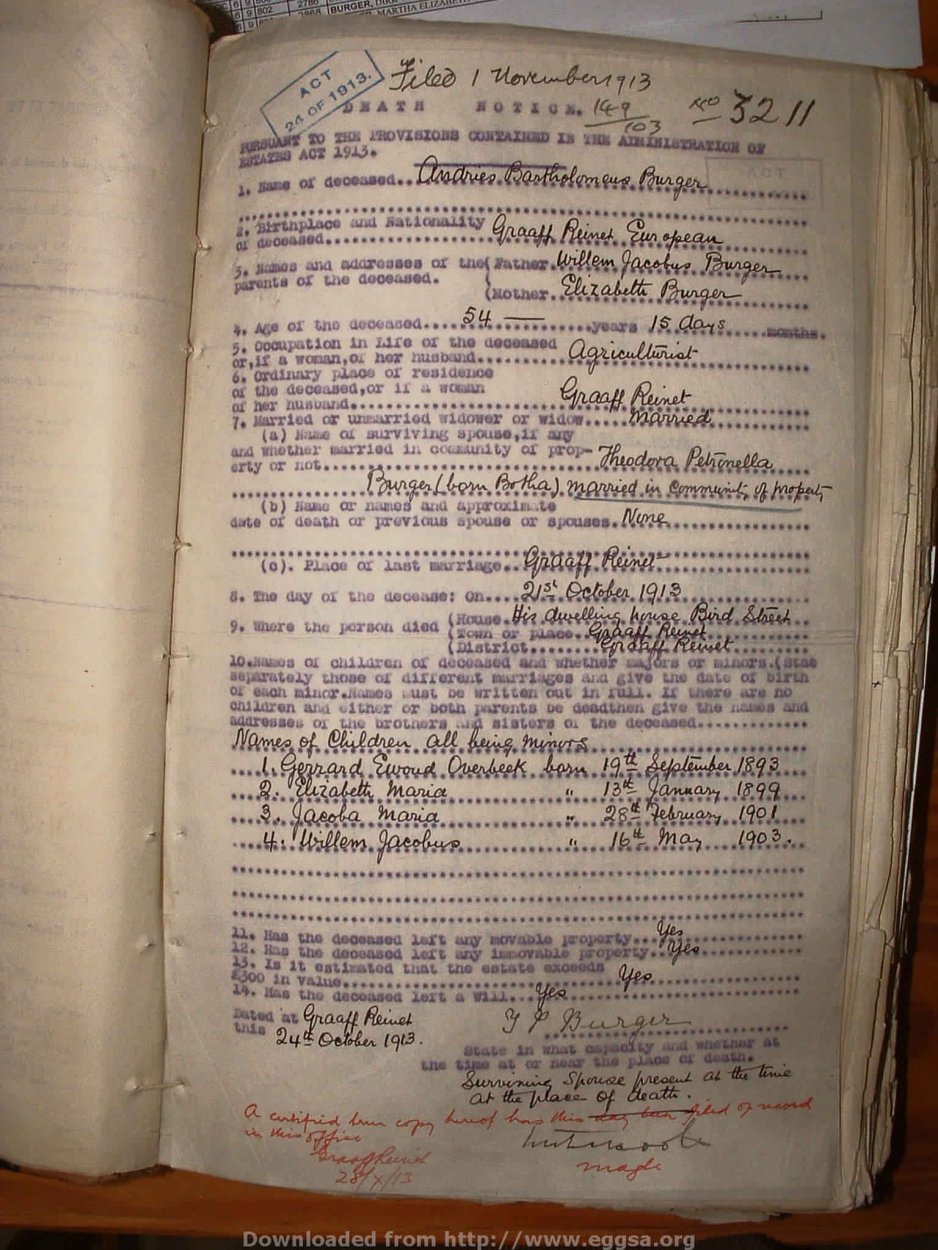 6 9 802 2786 BURGER,
2868 MARTHA ELIZABETH
ACT
24 OF 1913.
Filed 1 November 1913
DEATH NOTICE. 149
103
No 3211
PURSUANT TO THE PROVISIONS CONTAINED IN THE ADMINISTRATION OF
ESTATES ACT 1913.
1. Name of deceased..Andries Bartholomeus Burger
2. Birthplace and Nationality
of deceased....Graaff Reinet European
3. Names and addresses of the( Father.Willem Jacobus Burger
parents of the deceased. (
(Mother..Elizabeth Burger
4. Age of the deceased.....54 — years 15 days months.
5. Occupation in Life of the deceased
or,if a woman,of her husband....Agriculturist
6. Ordinary place of residence
of the deceased,or if a woman
of her husband....Graaff Reinet
7. Married or unmarried widower or widow....Married
(a) Name of surviving spouse,if any
and whether married in community of prop-
erty or not....Theodora Petronella
Burger (born Botha) married in Community of property
(b) Name or names and approximate
date of death or previous spouse or spouses.None
(c). Place of last marriage..Graaff Reinet
8. The day of the decease: On....21st October 1913
9. Where the person died (House.His dwelling house Bird Street
(Town or place.Graaff Reinet
(District.......Graaff Reinet
10.Names of children of deceased and whether majors or minors.(State
separately those of different marriages and give the date of birth
of each minor.Names must be written out in full. If there are no
children and either or both parents be deadthen give the names and
addresses of the brothers and sisters of the deceased............
Names of Children all being minors
1. Gerrard Ewoud Overbeek born 19th September 1893
2. Elizabeth Maria " 13th January 1899
3. Jacoba Maria " 28th February 1901
4. Willem Jacobus " 16th May 1903.
11. Has the deceased left any movable property...Yes
12. Has the deceased left any immovable property...Yes
13. Is it estimated that the estate exceeds
£300 in value....Yes
14. Has the deceased left a will...Yes
Dated at Graaff Reinet
this 24th October 1913.
T P Burger
State in what capacity and whether at
the time at or near the place of death.
Surviving Spouse present at the time
at the place of death.
A certified true copy hereof has this day been filed of record
in this office
Graaff Reinet
28/X/13
Magte
Downloaded from http://www.eggsa.org